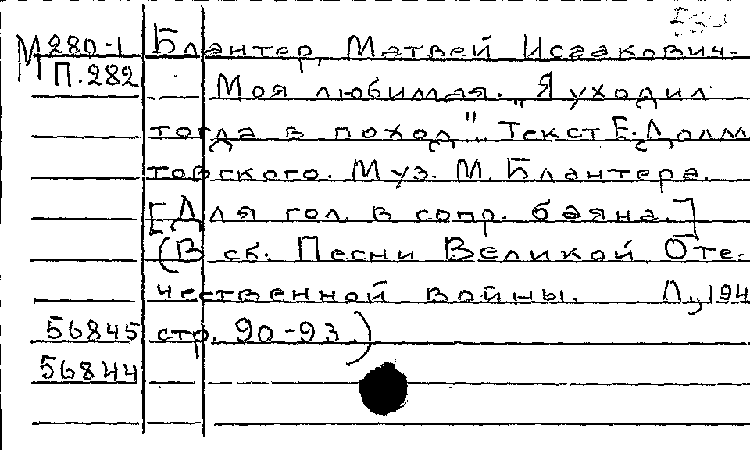 М 280-1 Блантер, Матвей Исаакович.
П.282 Моя любимая. "Я уходил
тогда в поход". Текст Е. Долма
товского. Муз. М. Блантера.
[Для гол. в сопр. баяна.]
(В сб. Песни Великой Оте-
чественной войны. Л., 194
56845 стр. 90-93)
56844